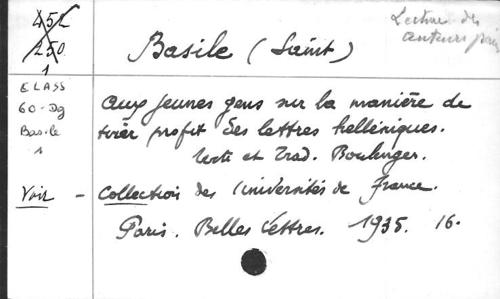 452
250
1
Basile (Saint)
Lecture des
auteurs
CLASS
60-Dg
Basile
1
aux jeunes gens sur la manière de
tirer profit des lettres helléniques.
texte et Trad. Boulenger.
Voir - Collection des Universités de France.
Paris. Belles Lettres. 1935. 16.